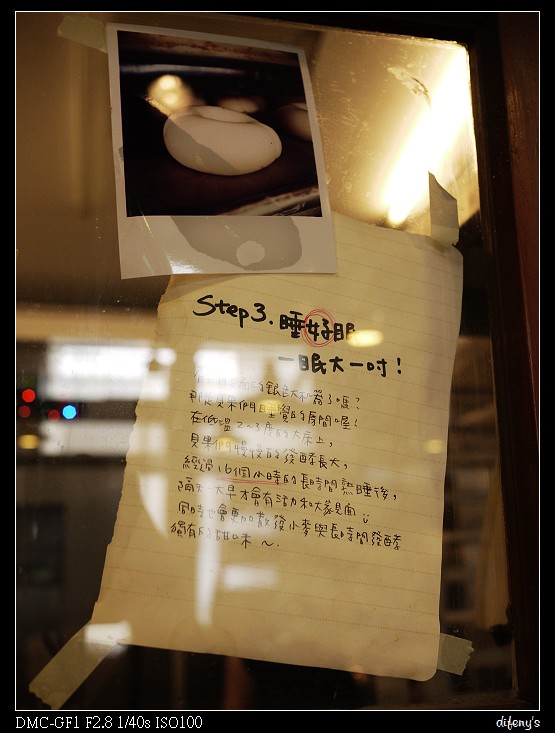 Step 3. 睡好眠
一眠大一吋!
的銀色大机器了嗎?
那是貝果們睡覺的房間喔!
在低溫 2~3度的大床上,
貝果們慢慢的發酵長大,
經過16個小時的長時間熟睡後,
隔天一大早才會有活力和大家見面
同時也會更加散發小麥與長時間發酵
獨有的甜味 ~.
DMC-GF1 F2.8 1/40s ISO100
difeny's